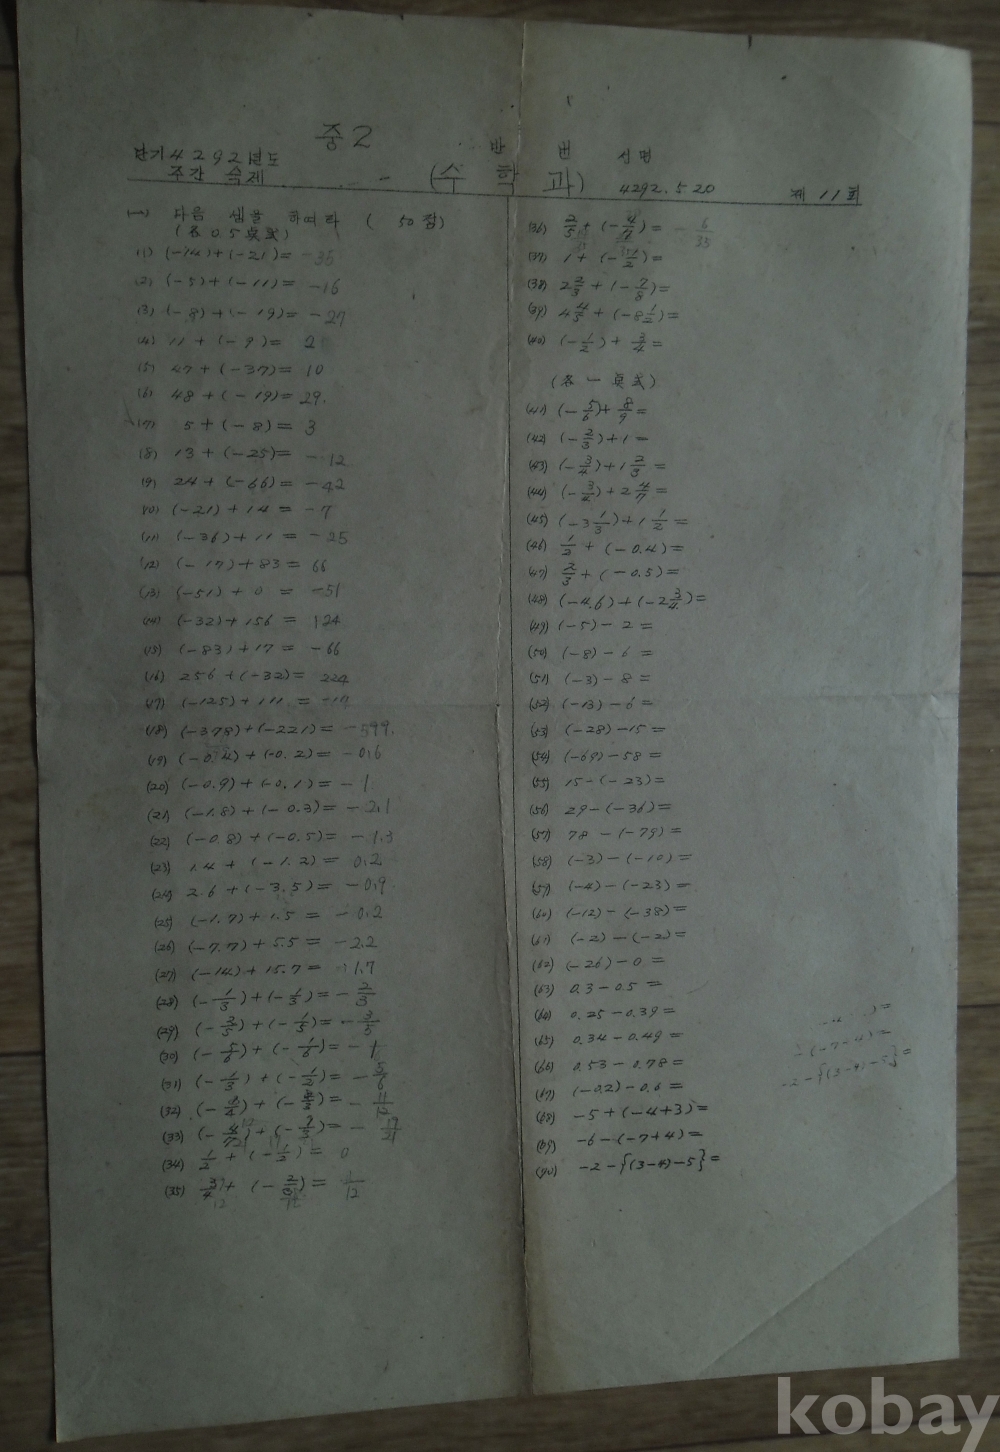 중2
단기 4292년도 반 번 성명
주간 숙제 (수학과) 4292. 5 20 제 11회
(一) 다음 셈을 하여라 ( 50점)
(各 0.5点式)
(1) (-14)+(-21)= -35
(2) (-5)+(-11)= -16
(3) (-8)+(-19)= -27
(4) 11+(-9)= 2
(5) 47+(-37)= 10
(6) 48+(-19)= 29.
(7) 5+(-8)= 3
(8) 13+(-25)= -12
(9) 24+(-66)= -42
(10) (-21)+14= -7
(11) (-36)+11= -25
(12) (-17)+83= 66
(13) (-51)+0= -51
(14) (-32)+156= 124
(15) (-83)+17= -66
(16) 256+(-32)= 224
(17) (-125)+111= -14
(18) (-378)+(-221)= -599.
(19) (-0.4)+(-0.2)= -0.6
(20) (-0.9)+(-0.1)= -1
(21) (-1.8)+(-0.3)= -2.1
(22) (-0.8)+(-0.5)= -1.3
(23) 1.4+(-1.2)= 0.2
(24) 2.6+(-3.5)= -0.9.
(25) (-1.7)+1.5= -0.2
(26) (-7.7)+5.5= -2.2
(27) (-14)+15.7= 1.7
(28) (-1/3)+(-1/3)= -2/3
(29) (-2/5)+(-1/5)= -3/5
(30) (-5/6)+(-1/6)= -1
(31) (-1/3)+(-1/2)= -5/6
(32) = -11/12
(33) (-4/7)+ = -
(34) 1/2+(-1/2)= 0
(35) 3/4+(-2/3)= 1/12
(36) 2/5+(-4/7)= -6/35
(37) 1+
(38) 2 2/3+(-7/8)=
(39) 4 4/5+(-8 1/2)=
(40) (-1/2)+3/4=
(各一点式)
(41) (-5/6)+8/9=
(42) (-2/3)+1=
(43) (-3/4)+1 2/3=
(44) (-3/4)+2 4/7=
(45) (-3 1/3)+1 1/2=
(46) 1/2+(-0.4)=
(47) 2/3+(-0.5)=
(48) (-4.6)+(-2 3/4)=
(49) (-5)-2=
(50) (-8)-6=
(51) (-3)-8=
(52) (-13)-6=
(53) (-28)-15=
(54) (-69)-58=
(55) 15-(-23)=
(56) 29-(-36)=
(57) 78-(-79)=
(58) (-3)-(-10)=
(59) (-4)-(-23)=
(60) (-12)-(-38)=
(61) (-2)-(-2)=
(62) (-26)-0=
(63) 0.3-0.5=
(64) 0.25-0.39=
(65) 0.34-0.49=
(66) 0.53-0.78=
(67) (-0.2)-0.6=
(68) -5+(-4+3)=
(69) -6-(-7+4)=
(70) -2-{(3-4)-5}=
-(-7+4)=
-2-{(3-4)-5}=
kobay